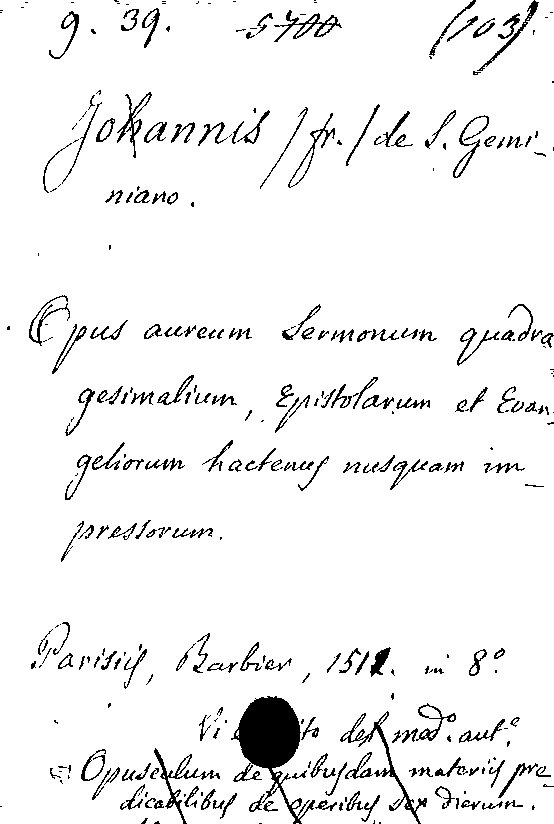 g. 39. 5700 (103).
Johannis /fr./ de S. Gemi-
niano.
Opus aureum Sermonum quadra
gesimalium, Epistolarum et Evan-
geliorum hactenus nusquam im-
pressorum.
Parisiis, Barbier, 1512. in 8°.
Vi to del med.° aut.e
Opusculum de quibusdam materiis pre-
dicabilibus de operibus sex dierum.